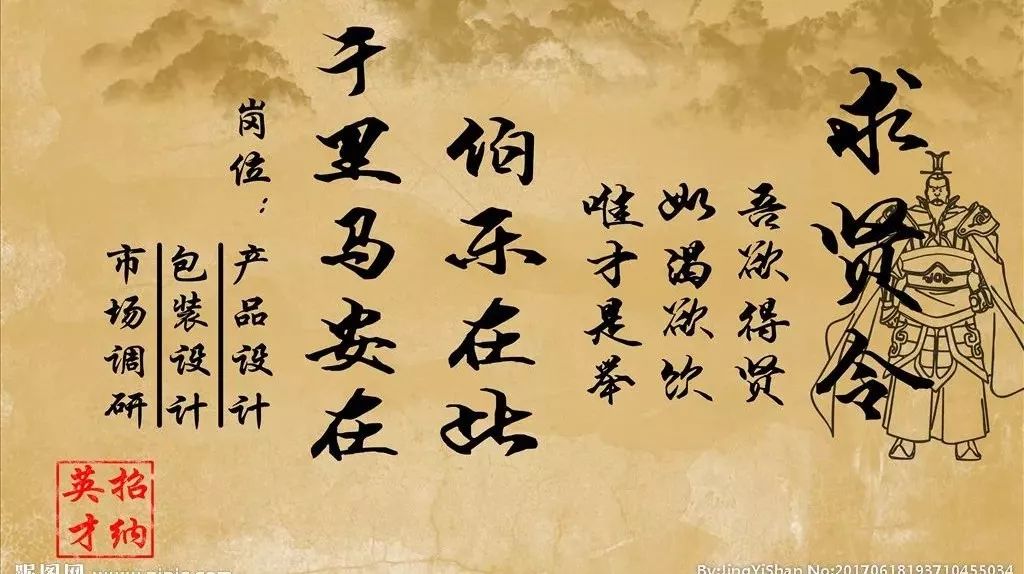 求贤令
吾欲得贤
如渴欲饮
唯才是举
伯乐在此
千里马安在
岗位：
产品设计
包装设计
市场调研
招纳
英才
By:JingYiShan No:20170618193710455034